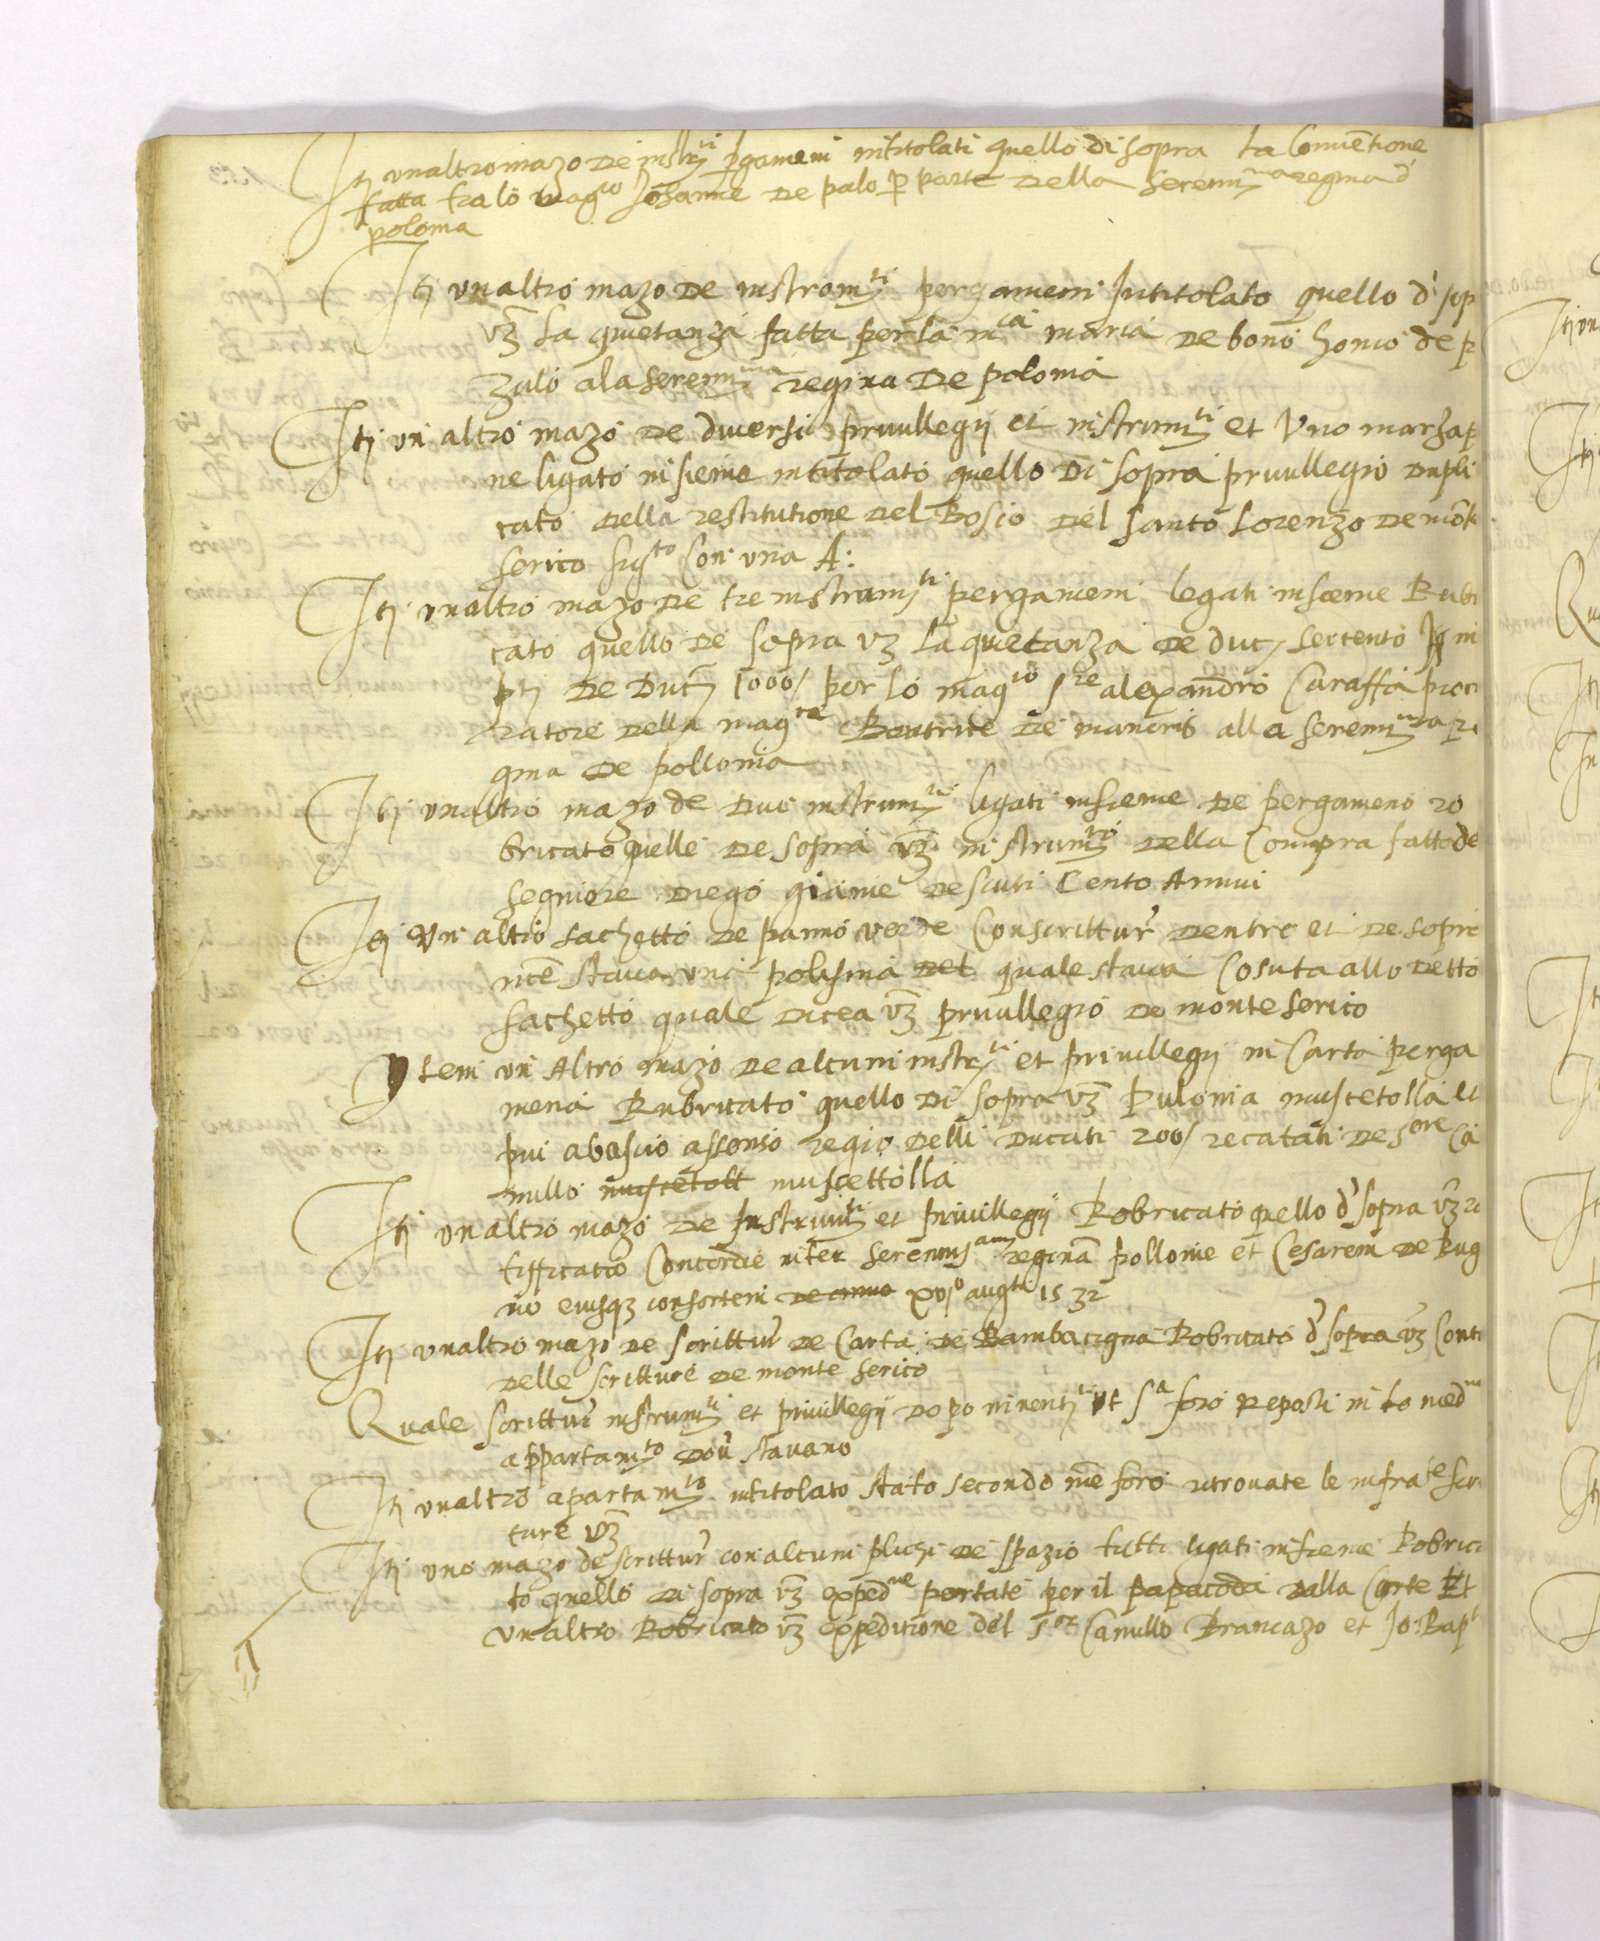 It unaltro mazo de instrti pergameni intitolati quello di sopra La Conventione
fatta tra lo magco Johanne de palo p parte della serenma regina d
polonia
It unaltro mazo de instromti pergameni Intitolato quello d sop
vz la quietanza fatta per la mca maria de bono homo de p
zulo ala serenma regina de polonia
It un altro mazo de diversi privilegij et instrumti et Uno marzap
ne ligato insieme intitolato quello di sopra privilegio dupli
cato della restitutione del Bosio del santo Lorenzo de mote
serico sigto con una A:
It unaltro mazo de tre instrumti pergameni legati insieme Rubri
cato quello de sopra vz la quetanza de duc secento
de Duc 1000/ per lo magco sre alexandro Caraffa proc
ratore della magca Beatrice de manoris alla serenma re
gina de pollonia
It unaltro mazo de duo instrumti ligati insieme de pergameno ro
bricato quelle de sopra vz instrumto della Compra fatto de
segniore diego de scuti Cento Annui
It Un altro sachetto de panno verde Con scrittur dentro et de sopra
nce stava una polisina del quale stava Cosuta allo detto
sachetto quale dicea vz privillegio de monte serico
Item un Altro mazo de alcuni instrti et privillegij in Carta perga
mena Rubricato quello di sopra vz Pulonia muscetolla et
piu abascio assenso regio delli Ducati 200/ recatati de sore Ca
millo muscetoll muscettolla
It unaltro mazo de Instrumti et privillegij Robricato quello d sopra vz ra
tifficatio Concordie inter serenisam reginā pollonie et Cesarem de Rug
no eiusqz consortem de anno xvjo augti 1532
It unaltro mazo de scrittur de Carta de Bambacigna Robricato d sopra vz Conti
delle scritture de monte serico
Quale scrittur instrumti et privillegij dopo ut sa foro reposti in lo medmo
appartamto dove stavano
It unaltro apartamto intitolato stato secondo nce foro ritrovate le infrate scri
ture vz
It uno mazo de scrittur con alcuni plichi de spazio tutti ligati insieme Robrica
to quello di sopra vz expedne portate per il papacoda dalla Corte Et
unaltro Robricato vz expeditione del sor Camillo Brancazo et Jo: Bapt